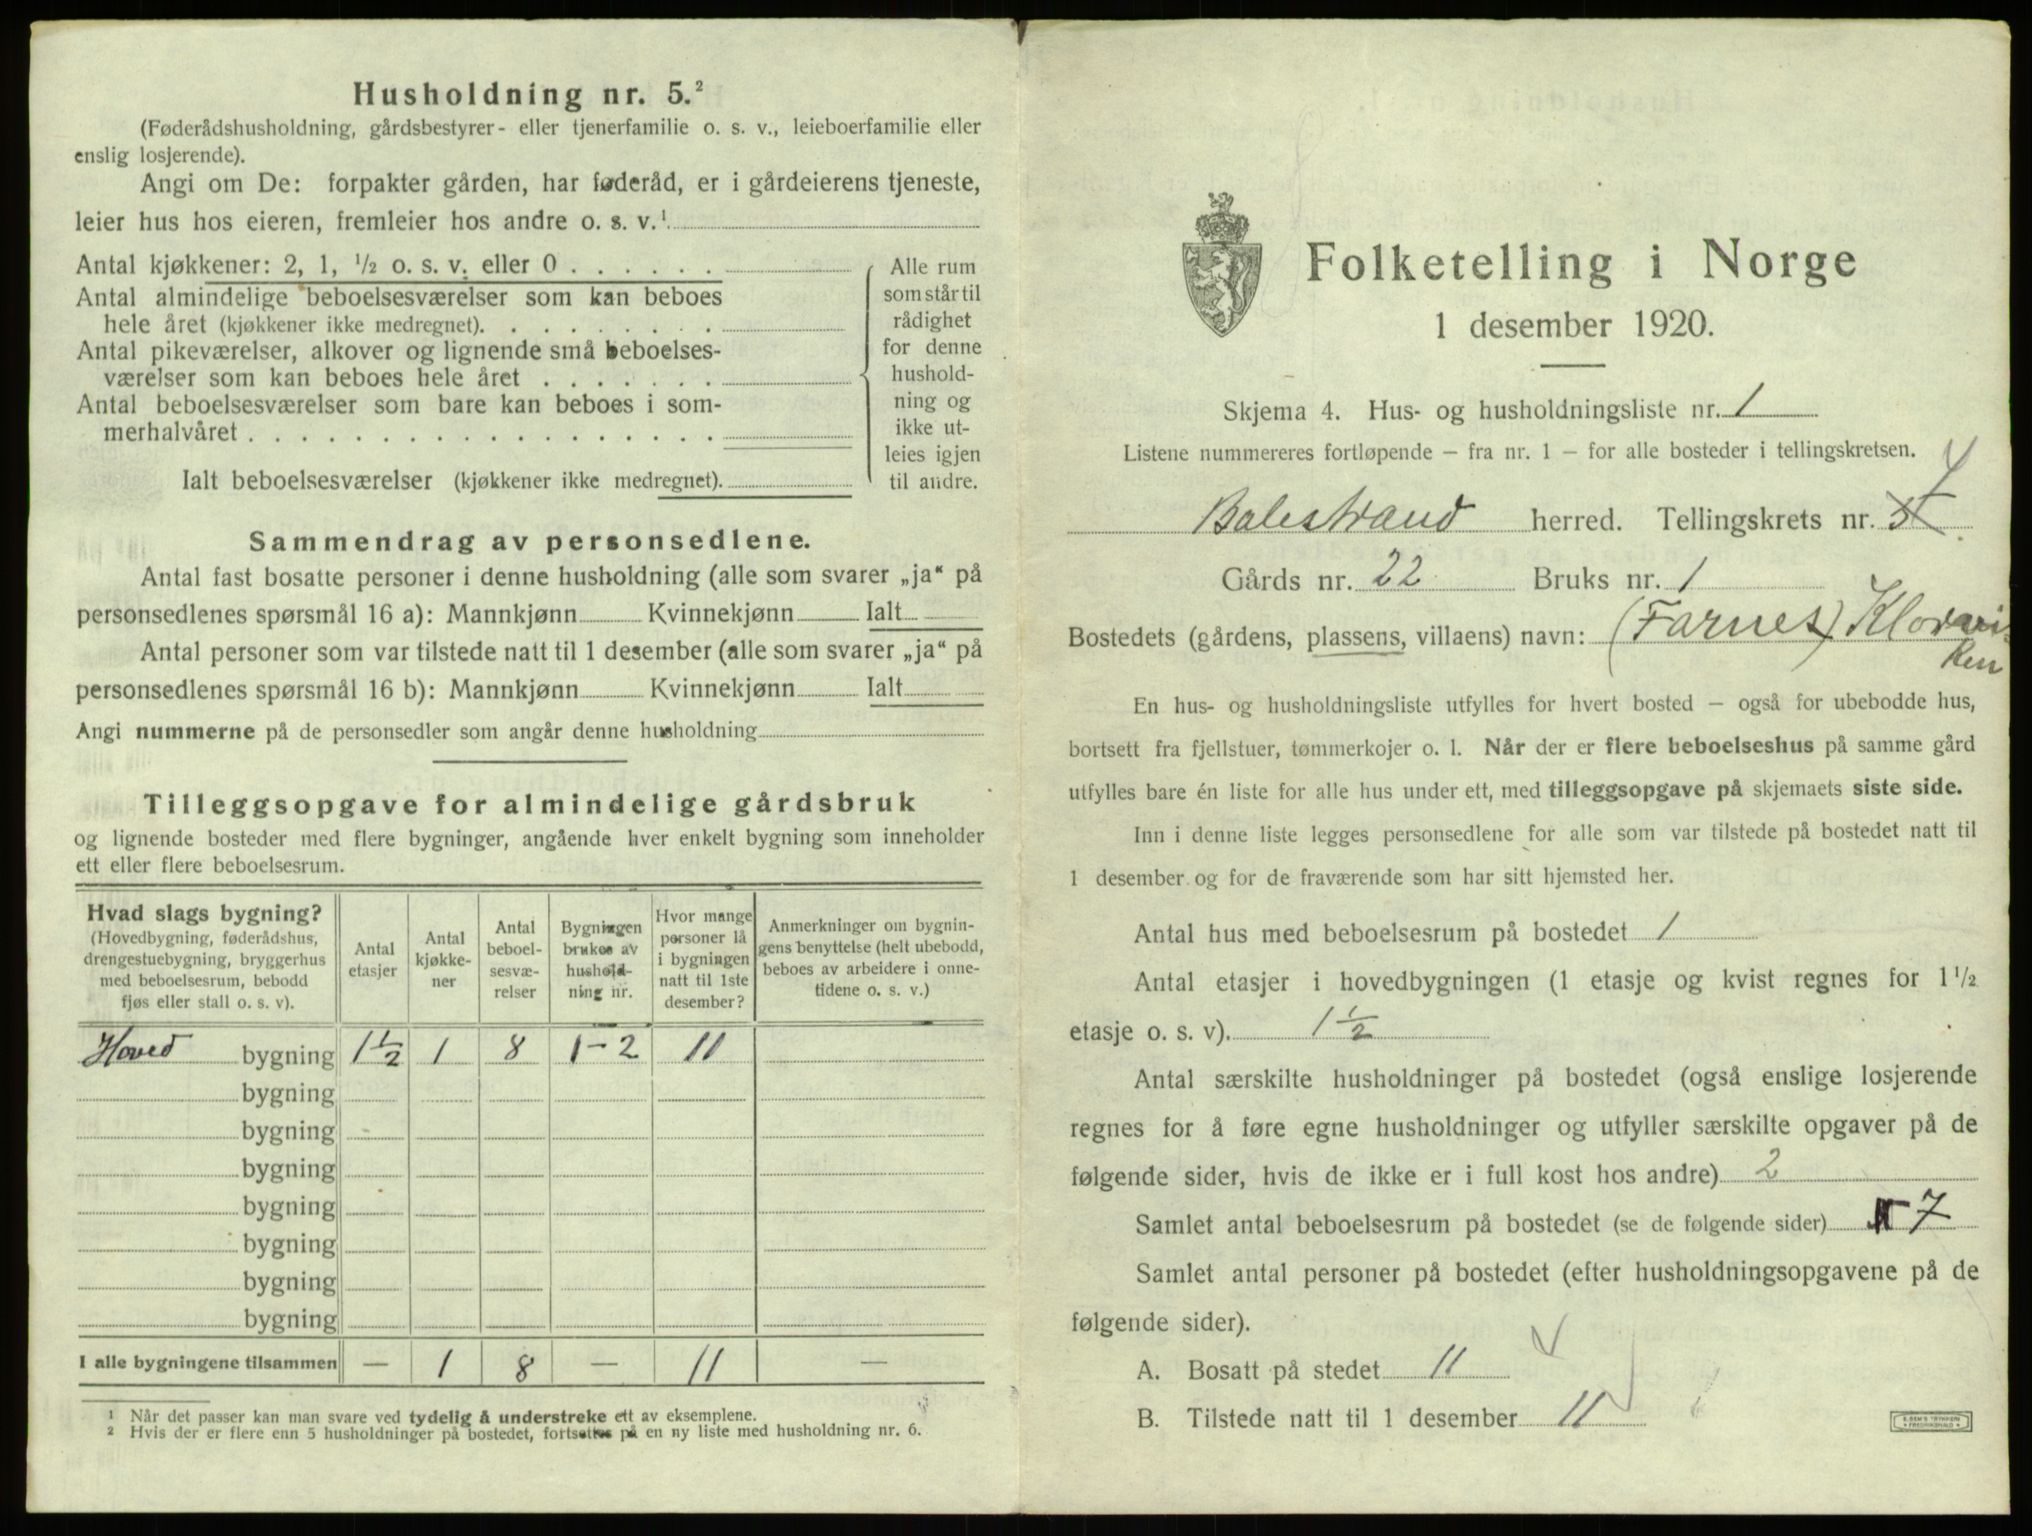 Husholdning nr. 5.²
(Føderådshusholdning, gårdsbestyrer- eller tjenerfamilie o. s. v., leieboerfamilie eller
enslig losjerende).
Angi om De: forpakter gården, har føderåd, er i gårdeierens tjeneste,
leier hus hos eieren, fremleier hos andre o. s. v.¹
Antal kjøkkener: 2, 1, ½ o. s. v. eller 0 . . . . . .
Antal almindelige beboelsesværelser som kan beboes
hele året (kjøkkener ikke medregnet). . . . . . . . .
Antal pikeværelser, alkover og lignende små beboelses-
værelser som kan beboes hele året . . . . . . .
Antal beboelsesværelser som bare kan beboes i som-
merhalvåret . . . . . . . . . . . . . . . . . .
Ialt beboelsesværelser (kjøkkener ikke medregnet).
Alle rum
som står til
rådighet
for denne
hushold-
ning og
ikke ut-
leies igjen
til andre.
Sammendrag av personsedlene.
Antal fast bosatte personer i denne husholdning (alle som svarer „ja“ på
personsedlenes spørsmål 16 a): Mannkjønn Kvinnekjønn Ialt
Antal personer som var tilstede natt til 1 desember (alle som svarer „ja“ på
personsedlenes spørsmål 16 b): Mannkjønn Kvinnekjønn Ialt
Angi nummerne på de personsedler som angår denne husholdning
Tilleggsopgave for almindelige gårdsbruk
og lignende bosteder med flere bygninger, angående hver enkelt bygning som inneholder
ett eller flere beboelsesrum.
Hvad slags bygning?
(Hovedbygning, føderådshus,
drengestuebygning, bryggerhus
med beboelsesrum, bebodd
fjøs eller stall o. s. v).
Antal
etasjer
Antal
kjøkke-
ner
Antal
beboel-
sesvæ-
relser
Bygningen
brukes av
hushold-
ning nr.
Hvor mange
personer lå
i bygningen
natt til 1ste
desember?
Anmerkninger om bygnin-
gens benyttelse (helt ubebodd,
beboes av arbeidere i onne-
tidene o. s. v.)
Hoved bygning 1½ 1 8 1-2 11
bygning
bygning
bygning
bygning
bygning
bygning
bygning
I alle bygningene tilsammen — 1 8 — 11 —
¹ Når det passer kan man svare ved tydelig å understreke ett av eksemplene.
² Hvis der er flere enn 5 husholdninger på bostedet, fortsettes på en ny liste med husholdning nr. 6.
Folketelling i Norge
1 desember 1920.
Skjema 4. Hus- og husholdningsliste nr. 1
Listene nummereres fortløpende – fra nr. 1 – for alle bosteder i tellingskretsen.
4
Balestrand herred. Tellingskrets nr.
Gårds nr. 22 Bruks nr. 1
Bostedets (gårdens, plassens, villaens) navn: (Farnes) Kloravi-
ken
En hus- og husholdningsliste utfylles for hvert bosted – også for ubebodde hus,
bortsett fra fjellstuer, tømmerkojer o. l. Når der er flere beboelseshus på samme gård
utfylles bare én liste for alle hus under ett, med tilleggsopgave på skjemaets siste side.
Inn i denne liste legges personsedlene for alle som var tilstede på bostedet natt til
1 desember og for de fraværende som har sitt hjemsted her.
Antal hus med beboelsesrum på bostedet 1
Antal etasjer i hovedbygningen (1 etasje og kvist regnes for 1 ½
etasje o. s. v). 1½
Antal særskilte husholdninger på bostedet (også enslige losjerende
regnes for å føre egne husholdninger og utfyller særskilte opgaver på de
følgende sider, hvis de ikke er i full kost hos andre) 2
Samlet antal beboelsesrum på bostedet (se de følgende sider) 7
Samlet antal personer på bostedet (efter husholdningsopgavene på de
følgende sider).
A. Bosatt på stedet 11
B. Tilstede natt til 1 desember 11